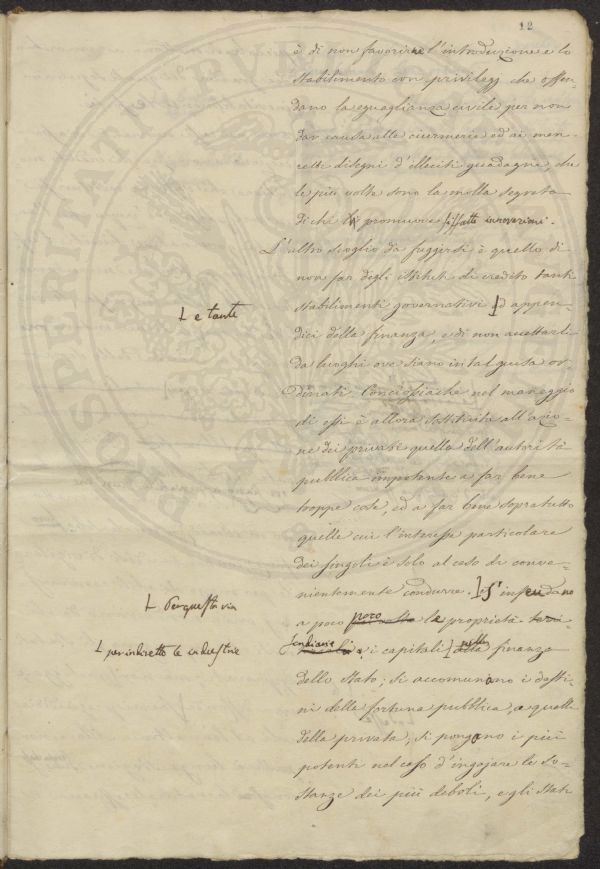 12
è di non favorirne l'introduzione e lo
stabilimento con privilegj che offen-
dano la eguaglianza civile per non
dar causa alle ciurmerie ed ai men-
disegni d'illeciti guadagni, che
le più volte sono la molla segreta
di chi promuove siffatte innovazioni.
L'altro scoglio da fuggirsi è quello di
non far degli istituti di credito tanti
stabilimenti governativi ed appen-
e tante
dici della finanza, e di non accettarli
da luoghi ove siano in tal guisa or-
dinati. Conciossiache nel maneggio
di essi è allora sostituita all'azio-
ne dei privati quella dell'autorità
pubblica impotente a far bene
troppe cose, ed a far bene sopratutto
quelle cui l'interesse particolare
dei singoli è solo al caso di conve-
nientemente condurre. S'infeudano
Per questa via
a poco poco le proprietà
fondiarie i capitali nella finanza
per indiretto le industrie
dello Stato; si accomunano i desti-
ni della fortuna pubblica, a quelli
della privata; si pongono i più
potenti nel caso d'ingojare le so-
stanze dei più deboli, e gli Stati